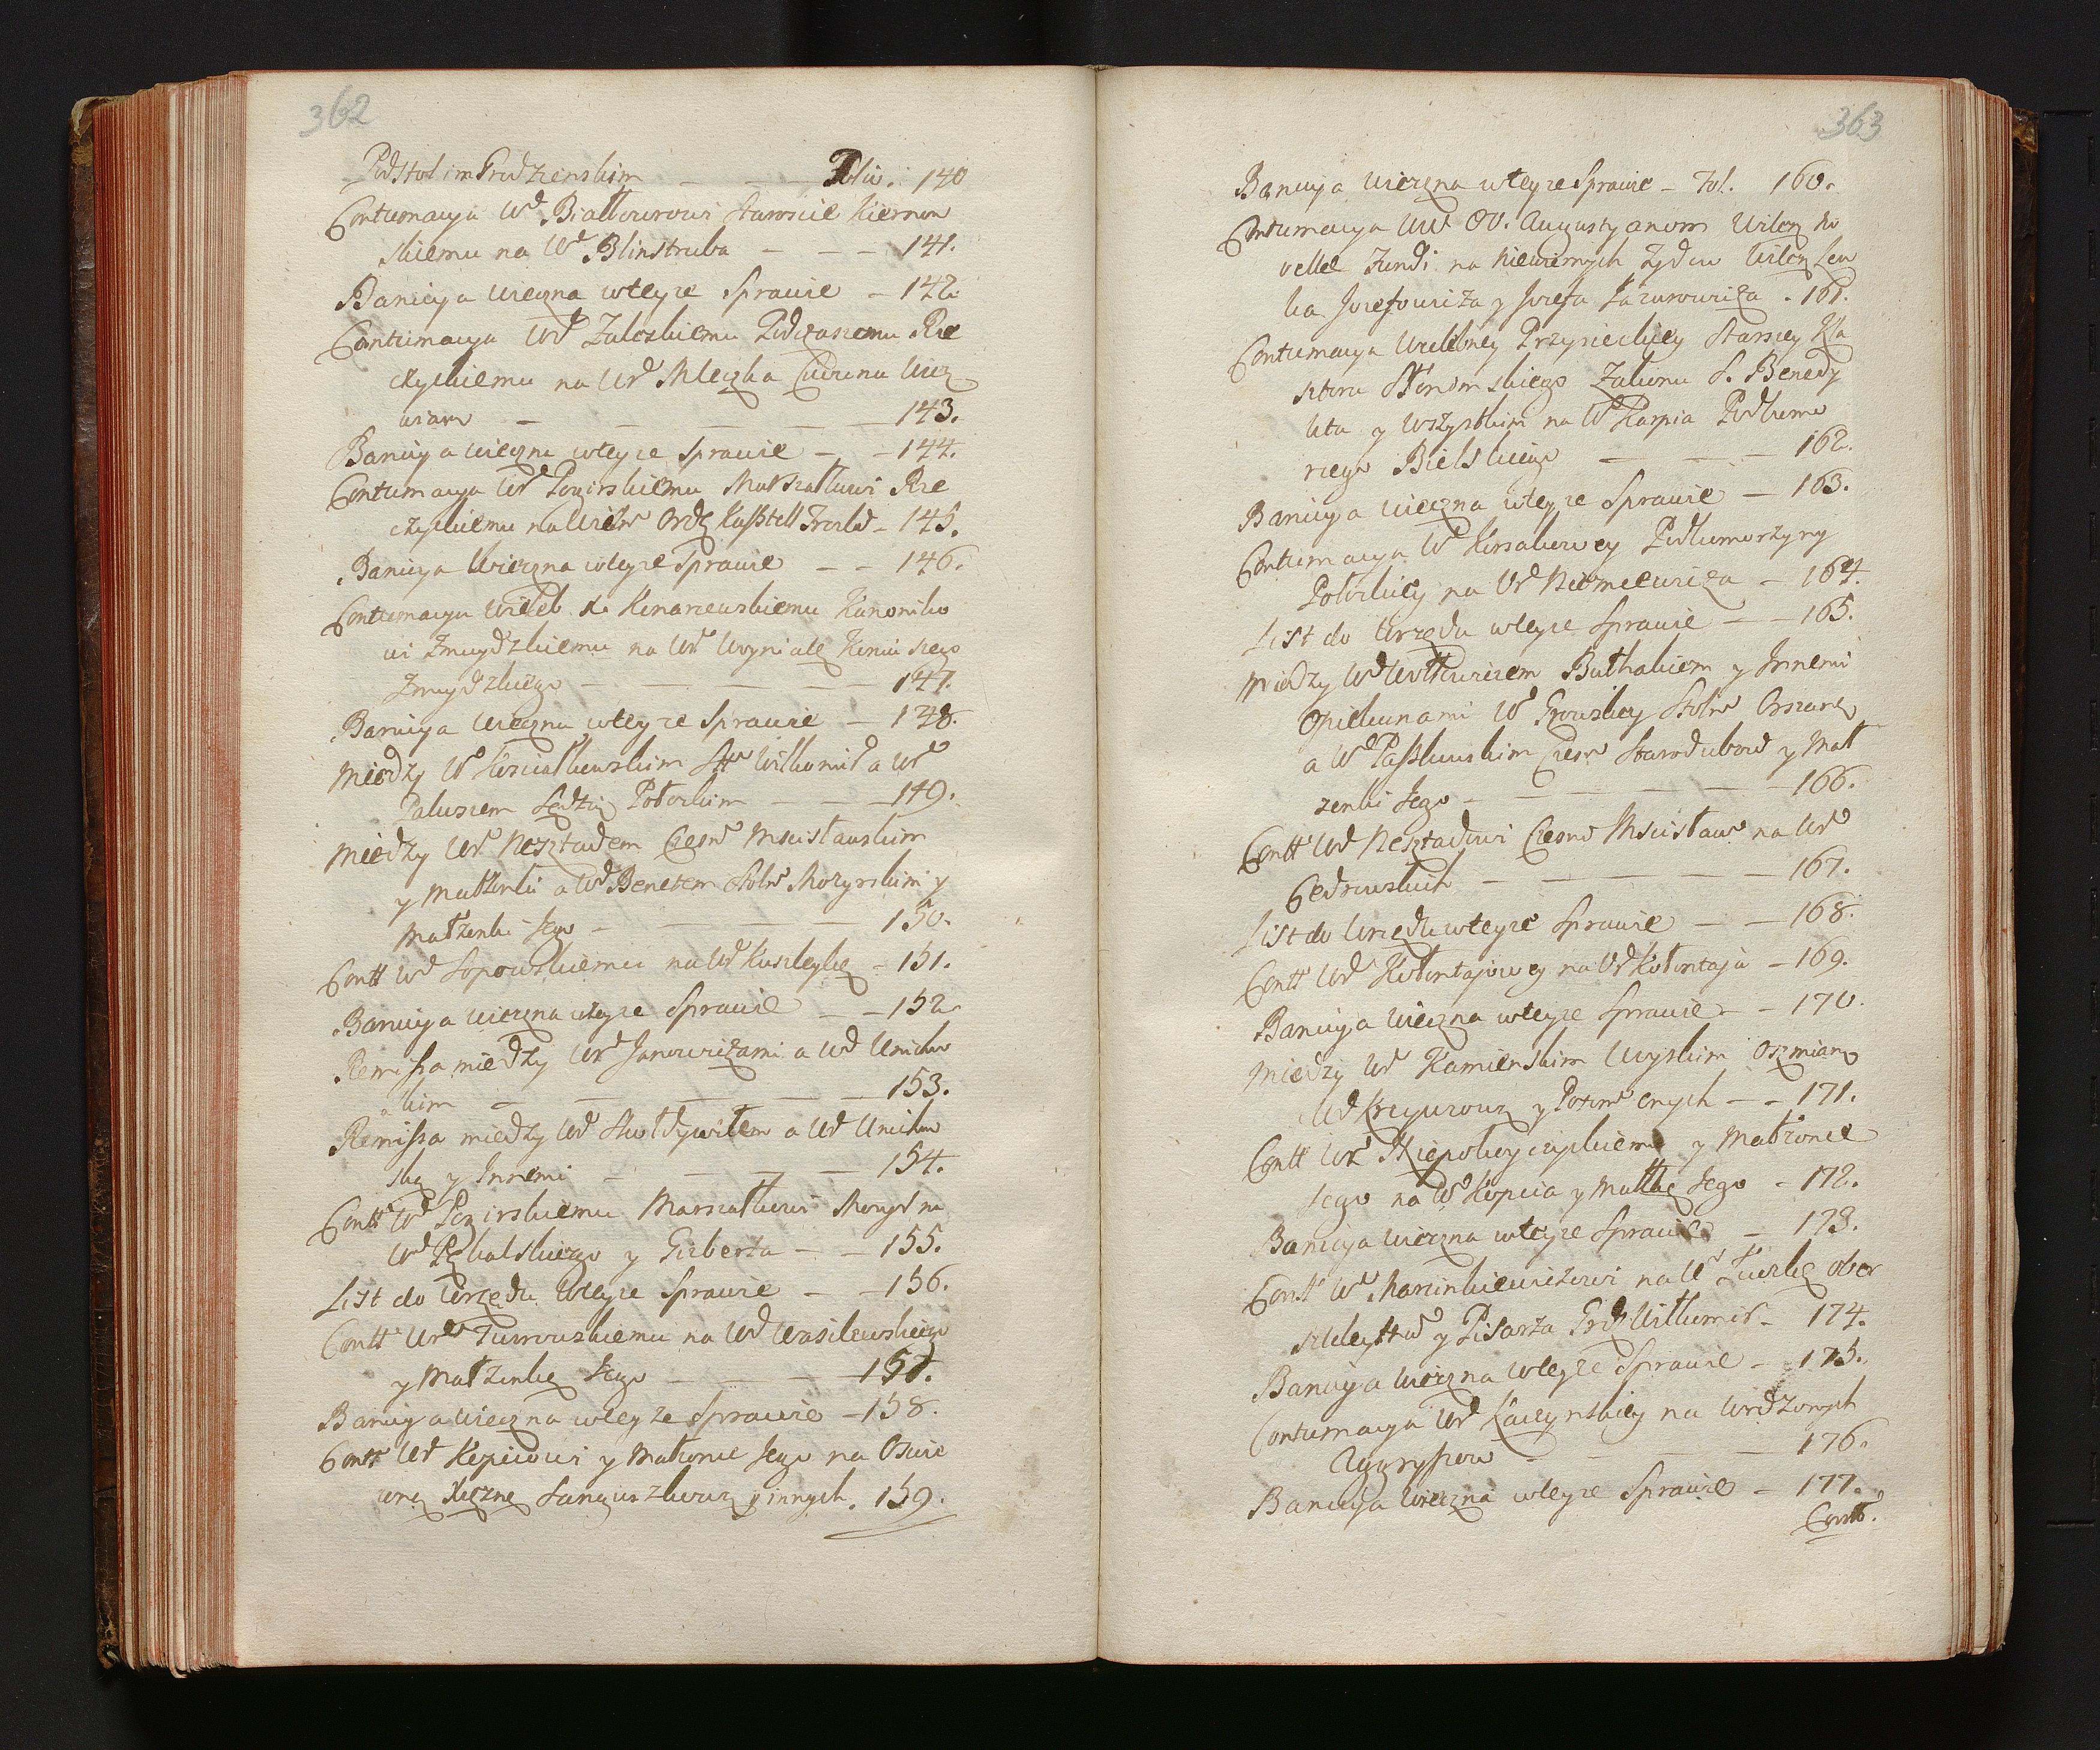 362
Podstolim Grodzienskim — — Folio. 140
Contumacya Wd Białłozorowi Staroscie Kiernow
skiemu na Wd Blinstruba — — — 141.
Banicya wieczna wteyze Sprawie — 142.
Contumacya Wd Zaleskiemu Podczaszemu Rze
czyckiemu na Wd Mleczka
— — — 143.
Banicya wieczna wteyze Sprawie — — 144.
Contumacya Wd Marszałkowi Rze
czyckiemu na — 145.
Banicya Wieczna wteyze Sprawie — — 146.
Contumacya Wieleb. X. Kanoniko
wi Zmuydzkiemu na Wd
Zmuydzkiego — — — — 147.
Banicya wieczna wteyze Sprawie — 148.
Miedzy Wd Kosciałkowskim Stta Wiłkomir a Wd
Paluszem Sędzią Połockim — — — 149.
Miedzy Wd Resztadem Czesn Mscisławskim
y Małżonki a Wd Benetem Stoln Mozyrskim y
Małżonki Jego — — — 150.
Contt Wd Sopockiemu na Wd — 151.
Banicya wieczna wteyze Sprawie — — 152.
Remissa miedzy Wd Janowiczami a Wd Unichow
skim — — — — 153.
Remissa miedzy Wd a Wd Unichow
ską y Innemi — — — 154.
Contt Wd Marszałkowi na
Wd y Giberta — — 155.
List do Urzędu wteyze Sprawie — — 156.
Contt Wd Turrowskiemu na Wd Wasilewskiego
y Małżonkę Jego — — — 157.
Banicya wieczna wteyze Sprawie — 158.
Contt Wd Kopciowi y Małżonce Jego na Oswie
coną Xiężnę Sanguszkową y innych. 159.
363
Banicya wieczna wteyze Sprawie — Fol. 160.
Contumacya WW OO. Augustyanom Wilen. No
vellae Fundi na niewiernych Żydow Wilen. Lew
ka Jozefowicza y Jozefa Łazarowicza. 161.
Contumacya Wielebney Przysieckiey Starszey Kla
sztoru Słonimskiego Zakonu S. Benedy
kta y wszystkim na Wd Karpia Podkomo
rzego Bielskiego — — — 162.
Banicya wieczna wteyze Sprawie — 163.
Contumacya Wd Korsakowey Podkomorzyny
Połockiey na Wd Niemcewicza — 164.
List do Urzędu wteyze Sprawie — — 165.
Miedzy Wd Wołkowiczem Buthakiem y Innemi
Opiekunami Wd Stoln Orszan
a Wd Paszkowskim Czesn Starodubow y Mał
żonki Jego — — — — 166.
Contt Wd Resztadowi Czesn Mscisław na Wd
Gedrowskich — — — — 167.
List do Urzędu wteyze Sprawie — — 168.
Contt Wd Kołontajowey na Wd Kołontaja — 169.
Banicya wieczna wteyze Sprawie — — 170.
Miedzy Wd Kamienskim Woyskim Oszmian
Wd y Potom onych — — 171.
Contt Wd y Małżonce
Jego na Wd Kopcia y Matkę Jego — 172.
Banicya wieczna wteyze Sprawie — 173.
Contt Wd Marcinkiewiczowi na Wd ober
szteleytt y Pisarza Grdz Wiłkomir — 174.
Banicya wieczna wteyze Sprawie — 175.
Contumacya Wd na Urodzonych
— — — 176.
Banicya wieczna wteyze Sprawie — 177.
Contt.